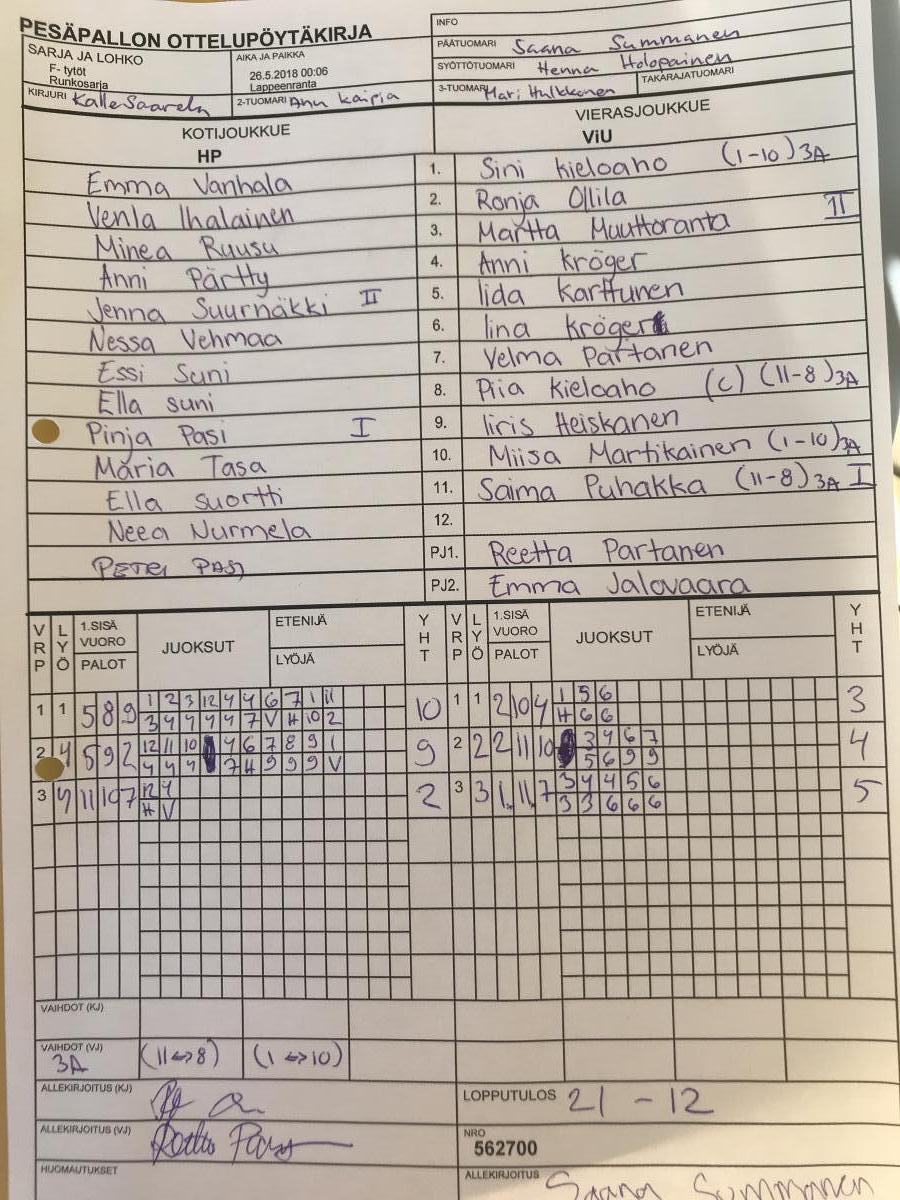 PESÄPALLON OTTELUPÖYTÄKIRJA
INFO
SARJA JA LOHKO
F- tytöt
Runkosarja
AIKA JA PAIKKA
26.5.2018 00:06
Lappeenranta
PÄÄTUOMARI Saana Summanen
SYÖTTÖTUOMARI Henna Holopainen
KIRJURI Kalle Saarela
2-TUOMARI Anu Kaipia
3-TUOMARI Mari Hulkkonen
TAKARAJATUOMARI
KOTIJOUKKUE
HP
VIERASJOUKKUE
ViU
Emma Vanhala 1. Sini Kieloaho (1-10) 3A
Venla Ihalainen 2. Ronja Ollila
Minea Ruusu 3. Martta Muuttoranta II
Anni Pärtty 4. Anni Kröger
Jenna Suurnäkki II 5. Iida Karttunen
Nessa Vehmaa 6. Iina Kröger
Essi Suni 7. Velma Partanen
Ella Suni 8. Piia Kieloaho (C) (11-8) 3A
Pinja Pasi I 9. Iiris Heiskanen
Maria Tasa 10. Miisa Martikainen (1-10) 3A
Ella Suortti 11. Saima Puhakka (11-8) 3A I
Neea Nurmela 12.
PETRI PASI PJ1. Reetta Partanen
PJ2. Emma Jalovaara
VRP LYÖ 1.SISÄ VUORO PALOT JUOKSUT ETENIJÄ LYÖJÄ YHT VRP LYÖ 1.SISÄ VUORO PALOT JUOKSUT ETENIJÄ LYÖJÄ YHT
1 1 5 8 9 1 2 3 12 4 4 6 7 1 11 10 1 1 2 10 4 1 5 6 3
3 4 4 4 4 4 7 V # 10 2 # 6 6
2 4 5 9 2 12 11 10 4 6 7 8 9 1 9 2 2 2 11 10 3 4 6 7 4
4 4 4 7 # 9 9 9 V 5 6 9 9
3 4 11 10 7 12 4 2 3 3 1. 11 7 3 4 4 5 6 5
# V 3 3 6 6 6
VAIHDOT (KJ)
VAIHDOT (VJ)
3A (11⇔8) (1⇔10)
ALLEKIRJOITUS (KJ)
LOPPUTULOS 21 - 12
ALLEKIRJOITUS (VJ)
NRO
562700
HUOMAUTUKSET
ALLEKIRJOITUS Saana Summanen